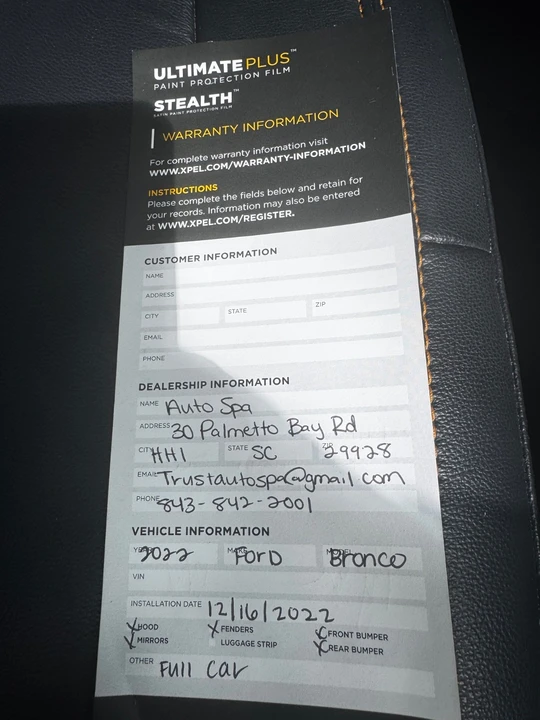 ULTIMATE PLUS™
PAINT PROTECTION FILM
STEALTH™
SATIN PAINT PROTECTION FILM
WARRANTY INFORMATION
For complete warranty information visit
WWW.XPEL.COM/WARRANTY-INFORMATION
INSTRUCTIONS
Please complete the fields below and retain for
your records. Information may also be entered
at WWW.XPEL.COM/REGISTER.
CUSTOMER INFORMATION
NAME
ADDRESS
CITY STATE ZIP
EMAIL
PHONE
DEALERSHIP INFORMATION
NAME Auto Spa
ADDRESS 30 Palmetto Bay Rd
CITY HHI STATE SC ZIP 29928
EMAIL Trustautospa@gmail com
PHONE 843-842-2001
VEHICLE INFORMATION
YEAR 2022 MAKE FORD MODEL Bronco
VIN
INSTALLATION DATE 12/16/2022
X HOOD X FENDERS X FRONT BUMPER
X MIRRORS LUGGAGE STRIP X REAR BUMPER
OTHER Full Car